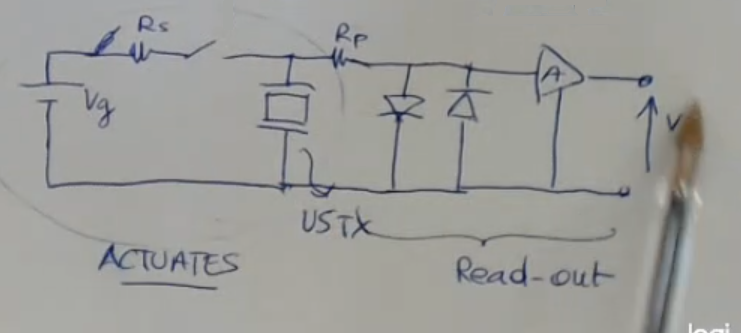 Rs
Rp
Vg
A
V
USTX
ACTUATES
Read-out
logi